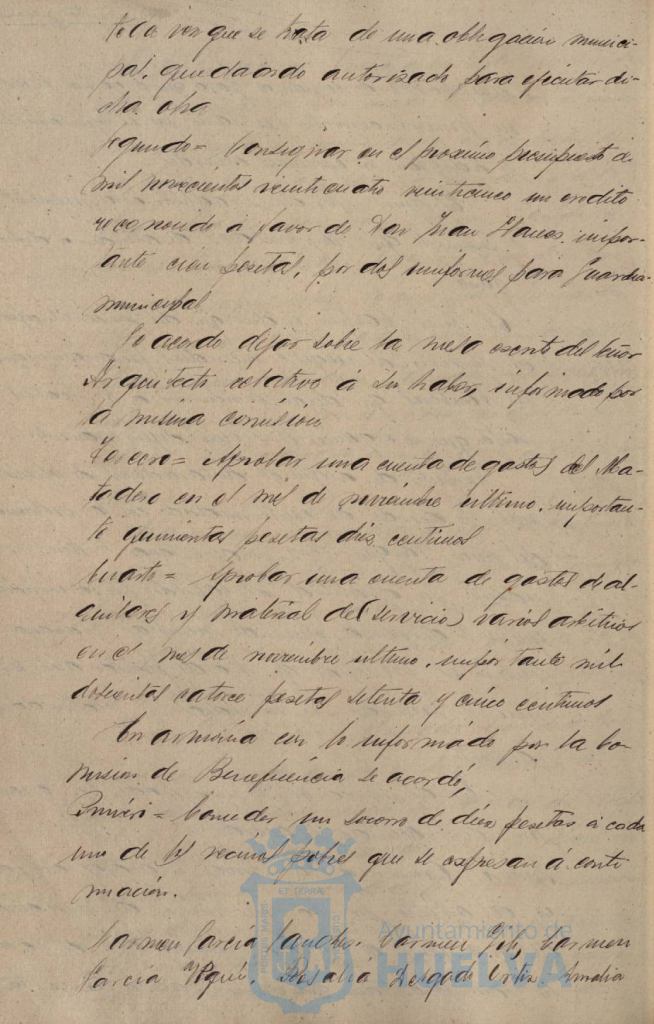 toda vez que se trata de una obligación munici-
pal, quedando autorizado para ejecutar di-
cha obra
Segundo= Consignar en el proximo presupuesto de
mil novecientos veinticuatro veinticinco un credito
reconocido á favor de Don Juan importante
tante cien pesetas, por dos uniformes para Guardia
municipal
Se acordó dejar sobre la mesa escrito del señor
Arquitecto relativo á su haber, informado por
la misma comisión
Tercero= Aprobar una cuenta de gastos del Ma-
tadero en el mes de noviembre ultimo, importan-
te quinientas pesetas diez centimos
Cuarto= Aprobar una cuenta de gastos de al-
quileres y material de (servicio) varios arbitrios
en el mes de noviembre ultimo, importante mil
doscientas catorce pesetas setenta y cinco centimos
En armonia con lo informado por la Co-
mision de Beneficencia se acordó,
Primero= Conceder un socorro de diez pesetas á cada
uno de los vecinos pobres que se expresan á conti-
nuación.
Carmen García Sanchez. Carmen Carmen
García Rosalía Delgado Ortiz. Amalia
Ayuntamiento de
HUELVA